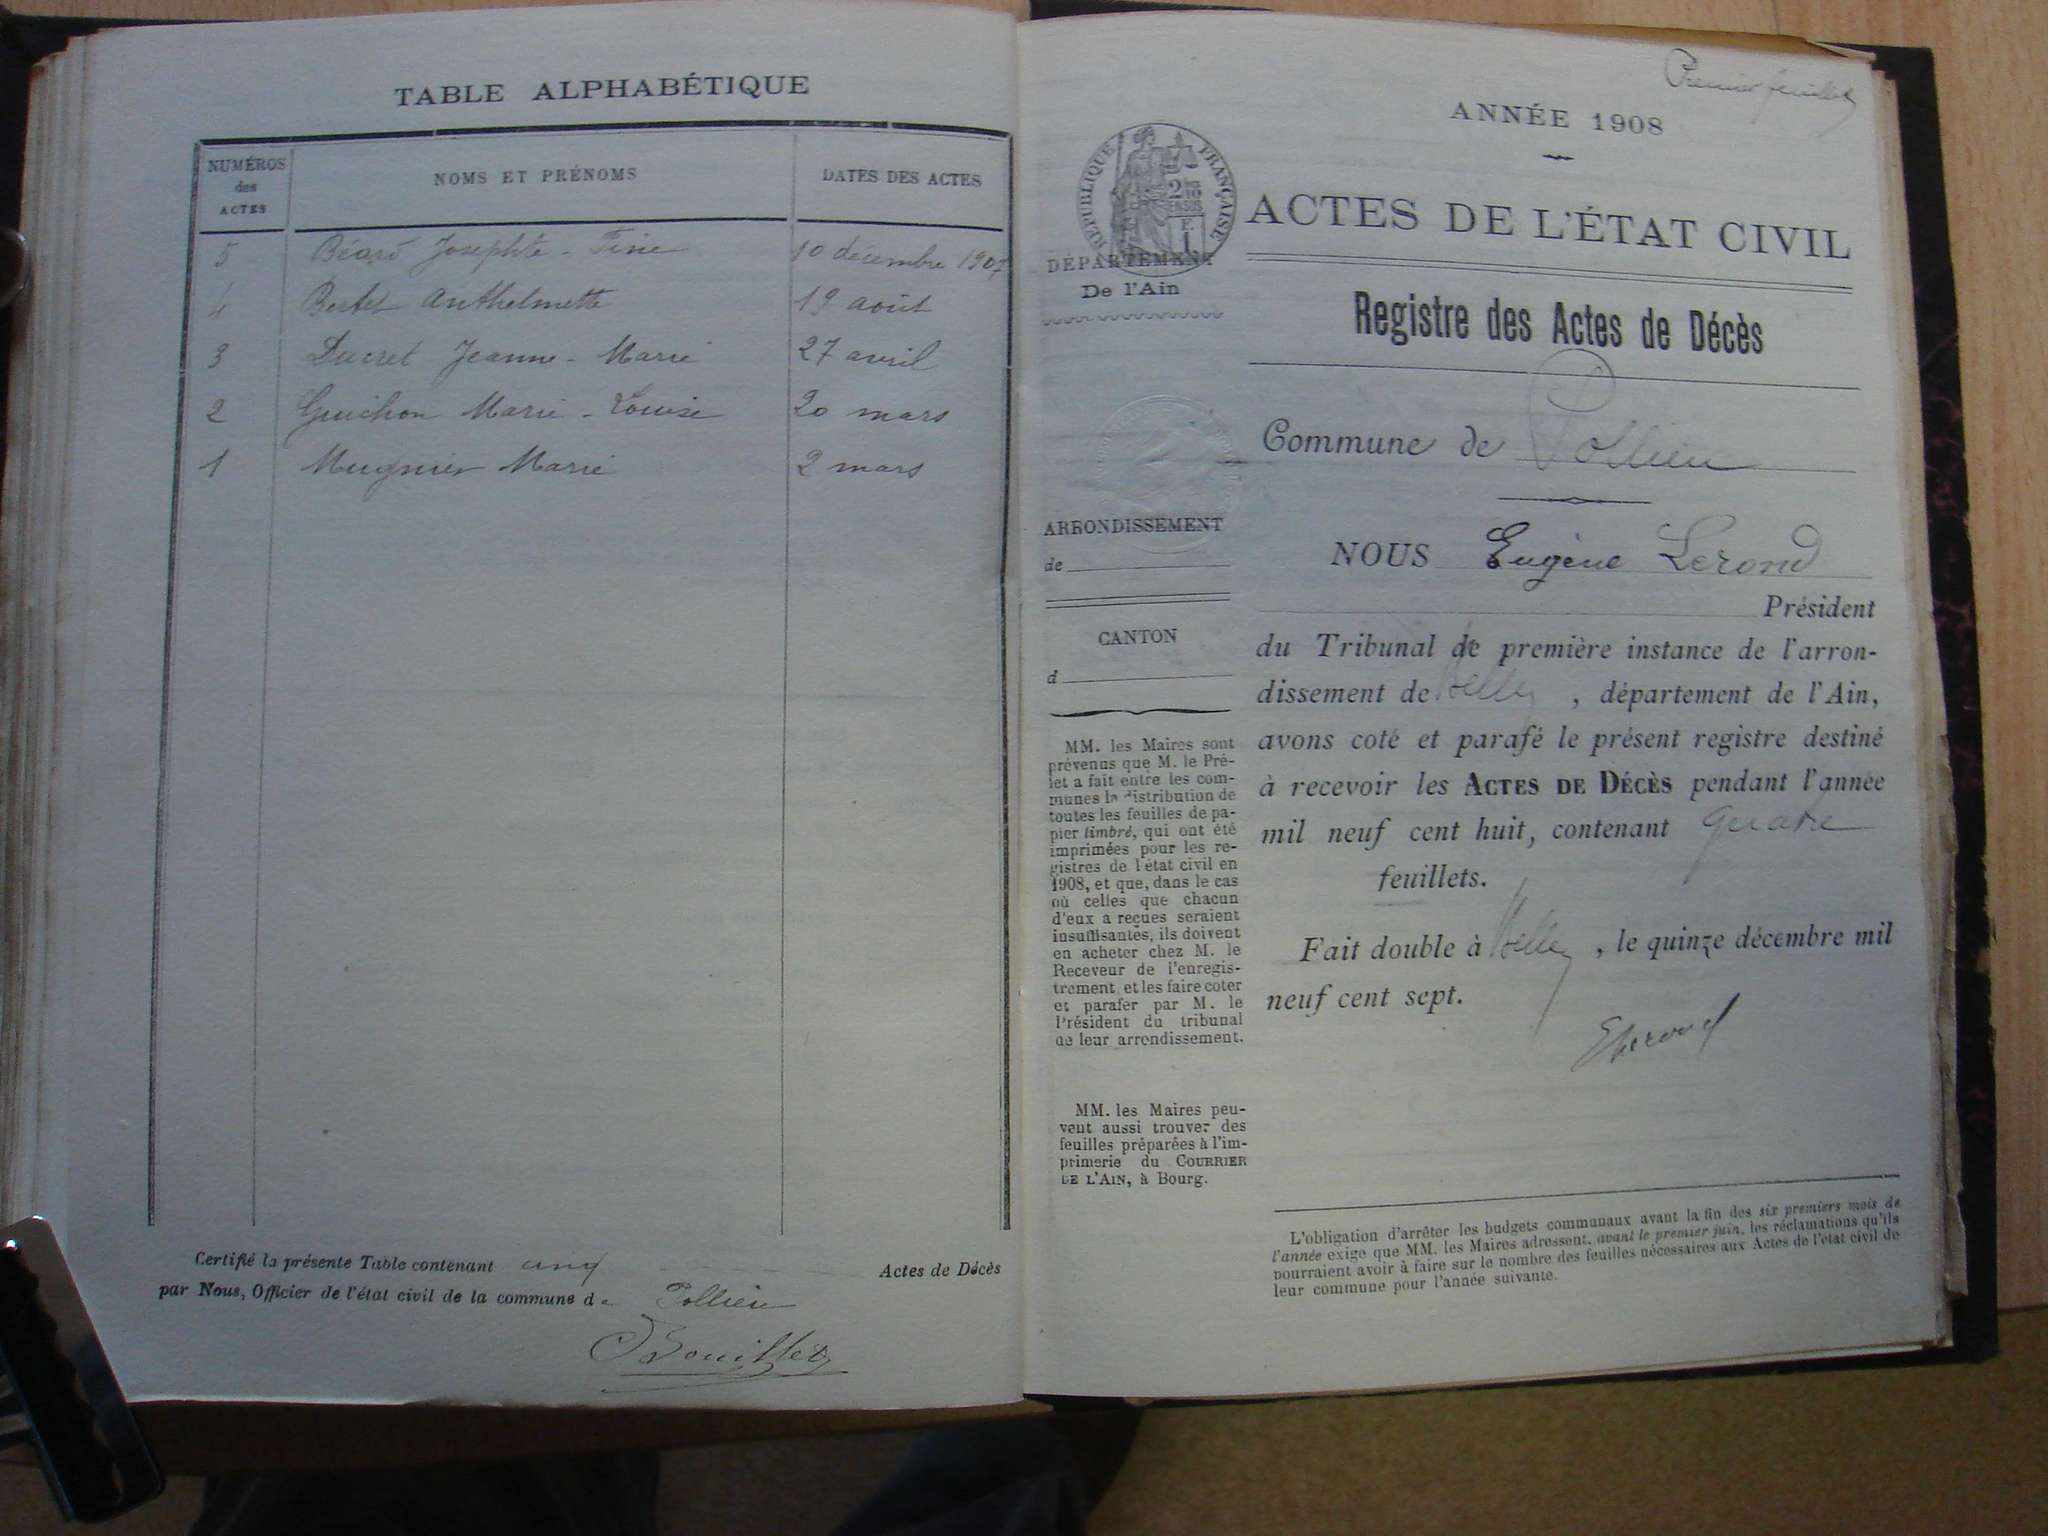 TABLE ALPHABÉTIQUE
NUMÉROS des ACTES
NOMS ET PRÉNOMS
DATES DES ACTES
5 Béard Josephte - Fine 10 décembre 1907
4 Bertet Anthelmette 19 août
3 Ducret Jeanne - Marie 27 avril
2 Guichon Marie - Louise 20 mars
1 Mugnier Marie 2 mars
Certifié la présente Table contenant cinq Actes de Décès
par Nous, Officier de l'état civil de la commune de Pollieu
Bouillet
Premier feuillet
ANNÉE 1908
RÉPUBLIQUE FRANÇAISE
ACTES DE L'ÉTAT CIVIL
DÉPARTEMENT
De l'Ain
Registre des Actes de Décès
Commune de Pollieu
ARRONDISSEMENT
de
CANTON
d
MM. les Maires sont
prévenus que M. le Pré-
fet a fait entre les com-
munes la distribution de
toutes les feuilles de pa-
pier timbré, qui ont été
imprimées pour les re-
gistres de l'état civil en
1908, et que, dans le cas
où celles que chacun
d'eux a reçues seraient
insuffisantes, ils doivent
en acheter chez M. le
Receveur de l'enregis-
trement, et les faire coter
et parafer par M. le
Président du tribunal
de leur arrondissement.
MM. les Maires peu-
vent aussi trouver des
feuilles préparées à l'im-
primerie du COURRIER
DE L'AIN, à Bourg.
NOUS Eugène Lerond
Président
du Tribunal de première instance de l'arron-
dissement de Belley, département de l'Ain,
avons coté et parafé le présent registre destiné
à recevoir les ACTES DE DÉCÈS pendant l'année
mil neuf cent huit, contenant quatre
feuillets.
Fait double à Belley, le quinze décembre mil
neuf cent sept.
ELerond
L'obligation d'arrêter les budgets communaux avant la fin des six premiers mois de
l'année exige que MM. les Maires adressent, avant le premier juin, les réclamations qu'ils
pourraient avoir à faire sur le nombre des feuilles nécessaires aux Actes de l'état civil de
leur commune pour l'année suivante.